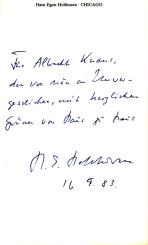 Hans Egon Holthusen - CHICAGO
Für Albrecht Knaus,
den vor nun an Unver-
gesslichen, mit herzlichen
Grüssen von Haus zu Haus
H. E. Holthusen
16. 9. 83.